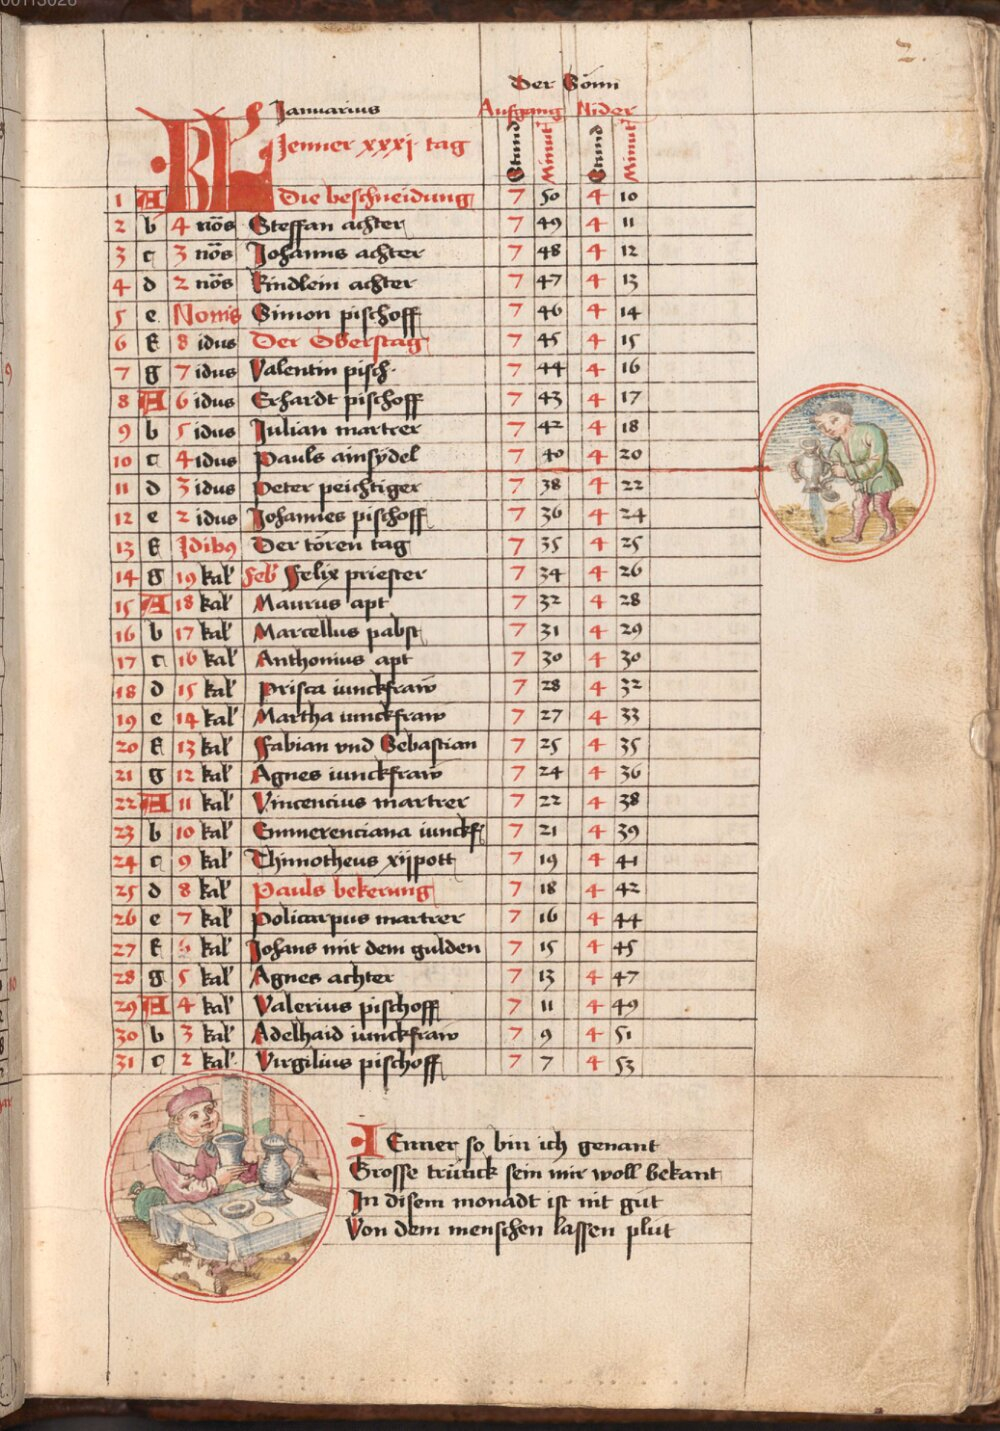 00113028
2.
Der Sonn
Januarius Aufgang Nider
KL Jenner xxxj tag Stund Minut Stund Minut
1 A Die beschneidung 7 50 4 10
2 b 4 nōs Steffan achter 7 49 4 11
3 c 3 nōs Johanns achter 7 48 4 12
4 d 2 nōs Kindlein achter 7 47 4 13
5 e Nonis Simon pischoff 7 46 4 14
6 f 8 idus Der Oberstag 7 45 4 15
7 g 7 idus Valentin pisch. 7 44 4 16
8 A 6 idus Erhardt pischoff 7 43 4 17
9 b 5 idus Julian martrer 7 42 4 18
10 c 4 idus Pauls ainsydel 7 40 4 20
11 d 3 idus Peter peichtiger 7 38 4 22
12 e 2 idus Johannes pischoff 7 36 4 24
13 f Jdibꝰ Der tören tag 7 35 4 25
14 g 19 kal' feb' Felix priester 7 34 4 26
15 A 18 kal' Maurus apt 7 32 4 28
16 b 17 kal' Marcellus pabst 7 31 4 29
17 c 16 kal' Anthonius apt 7 30 4 30
18 d 15 kal' Prisca iunckfraw 7 28 4 32
19 e 14 kal' Martha iunckfraw 7 27 4 33
20 f 13 kal' Fabian vnd Sebastian 7 25 4 35
21 g 12 kal' Agnes iunckfraw 7 24 4 36
22 A 11 kal' Vincencius martrer 7 22 4 38
23 b 10 kal' Emmerenciana iunckf 7 21 4 39
24 c 9 kal' Thimotheus xijpott 7 19 4 41
25 d 8 kal' Pauls bekerung 7 18 4 42
26 e 7 kal' Policarpus martrer 7 16 4 44
27 f 6 kal' Johans mit dem gulden 7 15 4 45
28 g 5 kal' Agnes achter 7 13 4 47
29 A 4 kal' Valerius pischoff 7 11 4 49
30 b 3 kal' Adelhaid iunckfraw 7 9 4 51
31 c 2 kal' Virgilius pischoff 7 7 4 53
JEnner so bin ich genant
Grosse trünck sein mir woll bekant
In disem monadt ist nit gut
Von dem menschen lassen plut